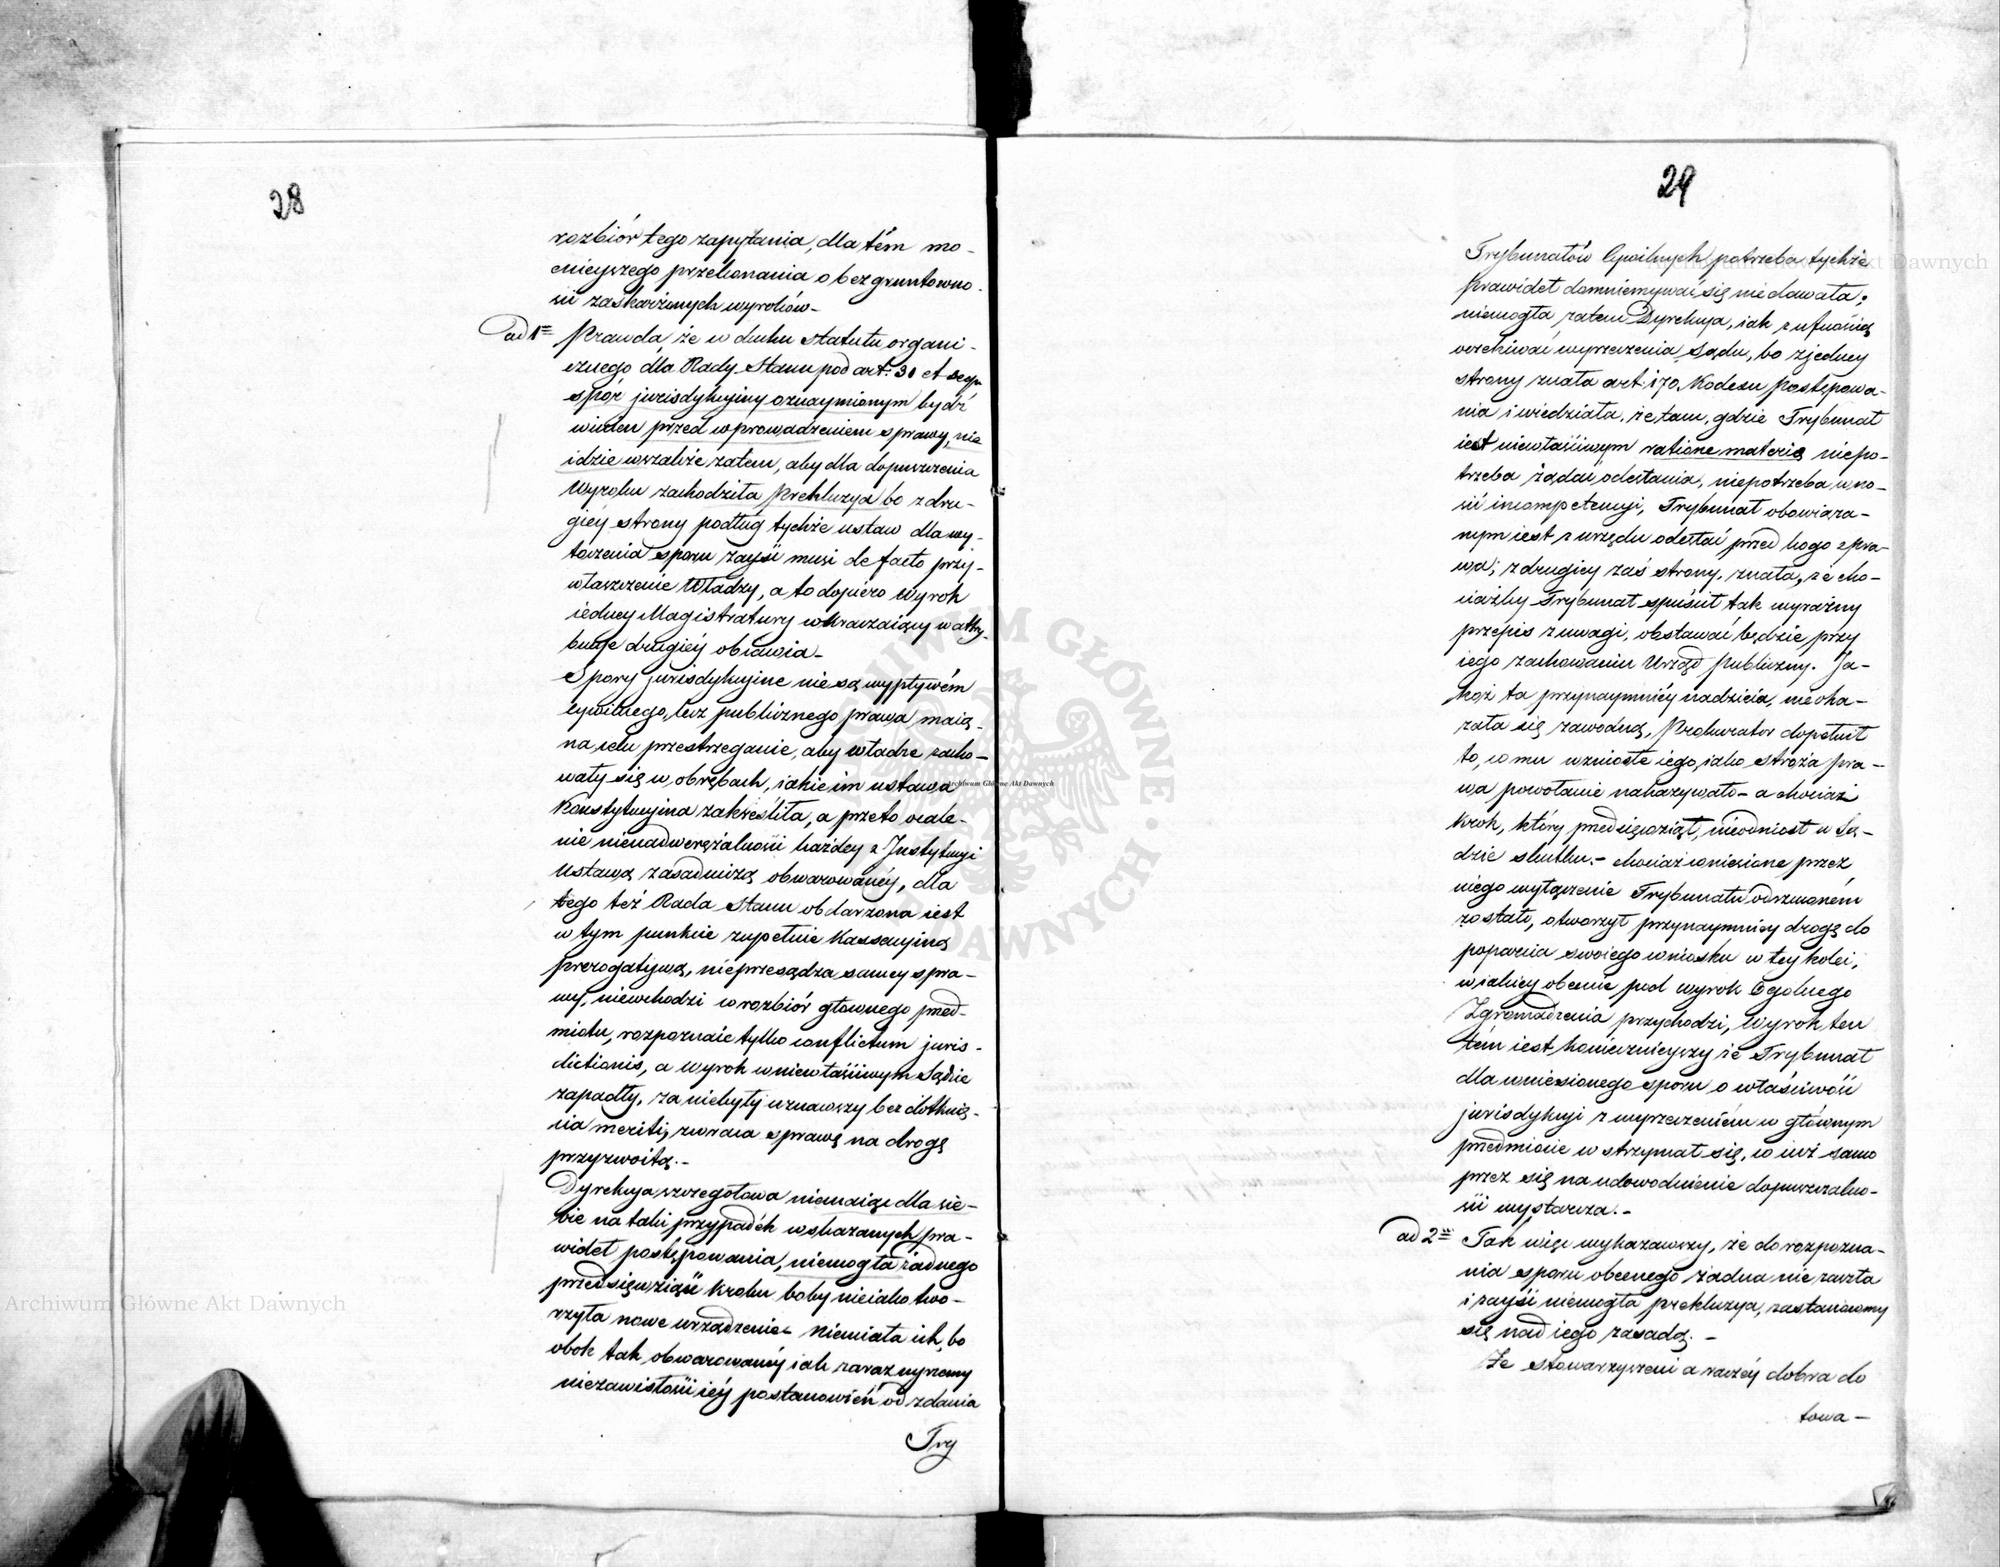 28
rozbiór tego zapytania, dla tém mo-
cnieyszego przekonania o bezgruntowno-
ści zaskarżonych wyroków-
ad 1º Prawda, że w duchu statutu organi-
cznego dla Rady Stanu pod art: 31 et sequ
spór jurisdykcyiny oznaymionym bydź
winien przed wprowadzeniem sprawy, nie
idzie wszakże zatem, aby dla dopuszczenia
Wyroku zachodziła prekluzya bo z dru-
giéy strony podług tychże ustaw dla wy-
toczenia sporu zayść musi de facto przy-
właszczenie Władzy, a to dopiero Wyrok
iedney Magistratury wkraczaiący w attry-
bucye drugiéy obiawia-
Spory jurisdykcyine nie są wypływém
cywilnego, lecz publicznego prawa maią-
na celu przestrzeganie, aby władze zacho-
wały się w obrębach, iakie im ustawa
Konstytucyina zakreśliła, a przeto ocale-
nie nienadwerężalności każdey z Jnstytucyi
Ustawą zasadniczą obwarowanéy, dla
tego też Rada Stanu obdarzona iest
w tym punkcie zupełnie Kassacyiną
prerogatywą, nieprzesądza samey spra-
wy, niewchodzi w rozbiór głownego przed-
miotu, rozpoznaie tylko conflictum juris-
dictionis, a Wyrok w niewłaściwym Sądzie
zapadły, za niebyły uznawszy bez dotknię-
cia meriti, zwraca sprawę na drogę
przyzwoitą.-
Dyrekcya szczegołowa niemaiąc dla sie-
bie na taki przypadék wskazanych pra-
wideł postępowania, niemogła żadnego
przedsięwziąść kroku boby nieiako two-
rzyła nowe urządzenie- Niemiała ich, bo
obok tak obwarowanéy iak zaraz uyrzemy
niezawisłości iéy postanowień od zdania
Try
29
Trybunałów Cywilnych potrzeba tychże
prawideł domniemywać się nie dawała;
niemogła zatem Dyrekcya, iak z ufnością
oczekiwać wyrzeczenia Sądu, bo z jedney
strony znała art. 170. Kodexu postępowa-
nia i wiedziała, że tam, gdzie Trybunał
iest niewłaściwym ratione materiae niepo-
trzeba żądać odesłania, niepotrzeba wno-
sić incompetencyi, Trybunał obowiąza-
nym iest z urzędu odesłać przed kogo z pra-
wa; z drugiey zaś strony, znała, że cho-
ciażby Trybunał spuścił tak wyraźny
przepis z uwagi, obstawać będzie przy
iego zachowaniu Urząd publiczny. Ja-
koż ta przynaymniéy nadzieia, nieoka-
zała się zawodną, Prokurator dopełnił
to, co mu wzniosłe iego, iako stróża pra-
wa powołanie nakazywało- a chociaż
krok, który przedsięwziął, nieodniosł w Są-
dzie skutku.- chociaż wniesione przez
niego wyłączenie Trybunału odrzuconém
zostało, otworzył przynaymniéy drogę do
poparcia swoiego wniosku w tey kolei,
w iakiey obecnie pod wyrok Ogolnego
Zgromadzenia przychodzi, Wyrok ten
tém iest koniecznieyszy że Trybunał
dla wniesionego sporu o właściwość
jurisdykcyi z wyrzeczeniem w głównym
przedmiocie wstrzymał się, co iuż samo
przez się na udowodnienie dopuszczalno-
ści wystarcza.-
ad 2º Tak więc wykazawszy, że do rozpozna-
nia sporu obecnego żadna nie zaszła
i zayść niemogła prekluzya, zastanówmy
się nad iego zasadą.-
Że stowarzyszeni a raczéy dobra do
towa-